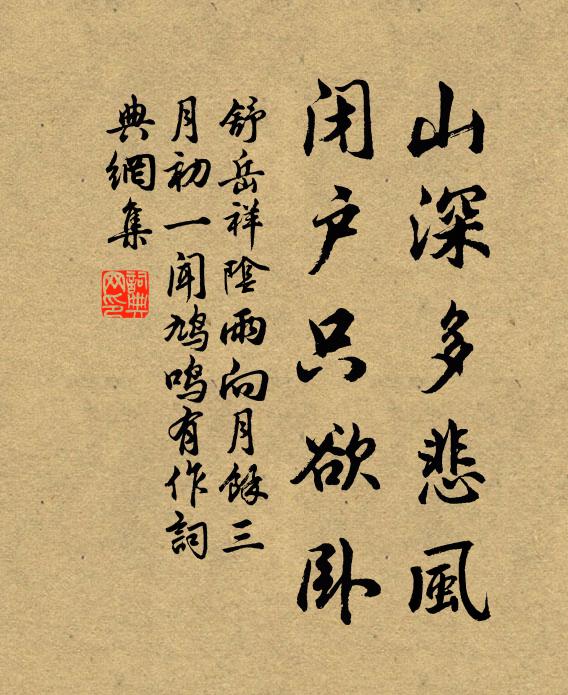 山深多悲風
闭户只欲卧
舒岳祥陰雨向月餘三
月初一闻鸠鸣有作詞
典網集
詞典网印